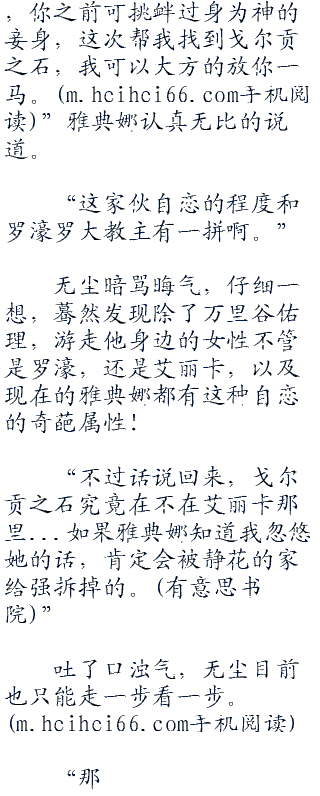 ，你之前可挑衅过身为神的
妾身，这次帮我找到戈尔贡
之石，我可以大方的放你一
马。(m.hcihci66.com手机阅
读)”雅典娜认真无比的说
道。
“这家伙自恋的程度和
罗濠罗大教主有一拼啊。”
无尘暗骂晦气，仔细一
想，蓦然发现除了万里谷佑
理，游走他身边的女性不管
是罗濠，还是艾丽卡，以及
现在的雅典娜都有这种自恋
的奇葩属性！
“不过话说回来，戈尔
贡之石究竟在不在艾丽卡那
里...如果雅典娜知道我忽悠
她的话，肯定会被静花的家
给强拆掉的。(有意思书
院)”
吐了口浊气，无尘目前
也只能走一步看一步。
(m.hcihci66.com手机阅读)
“那